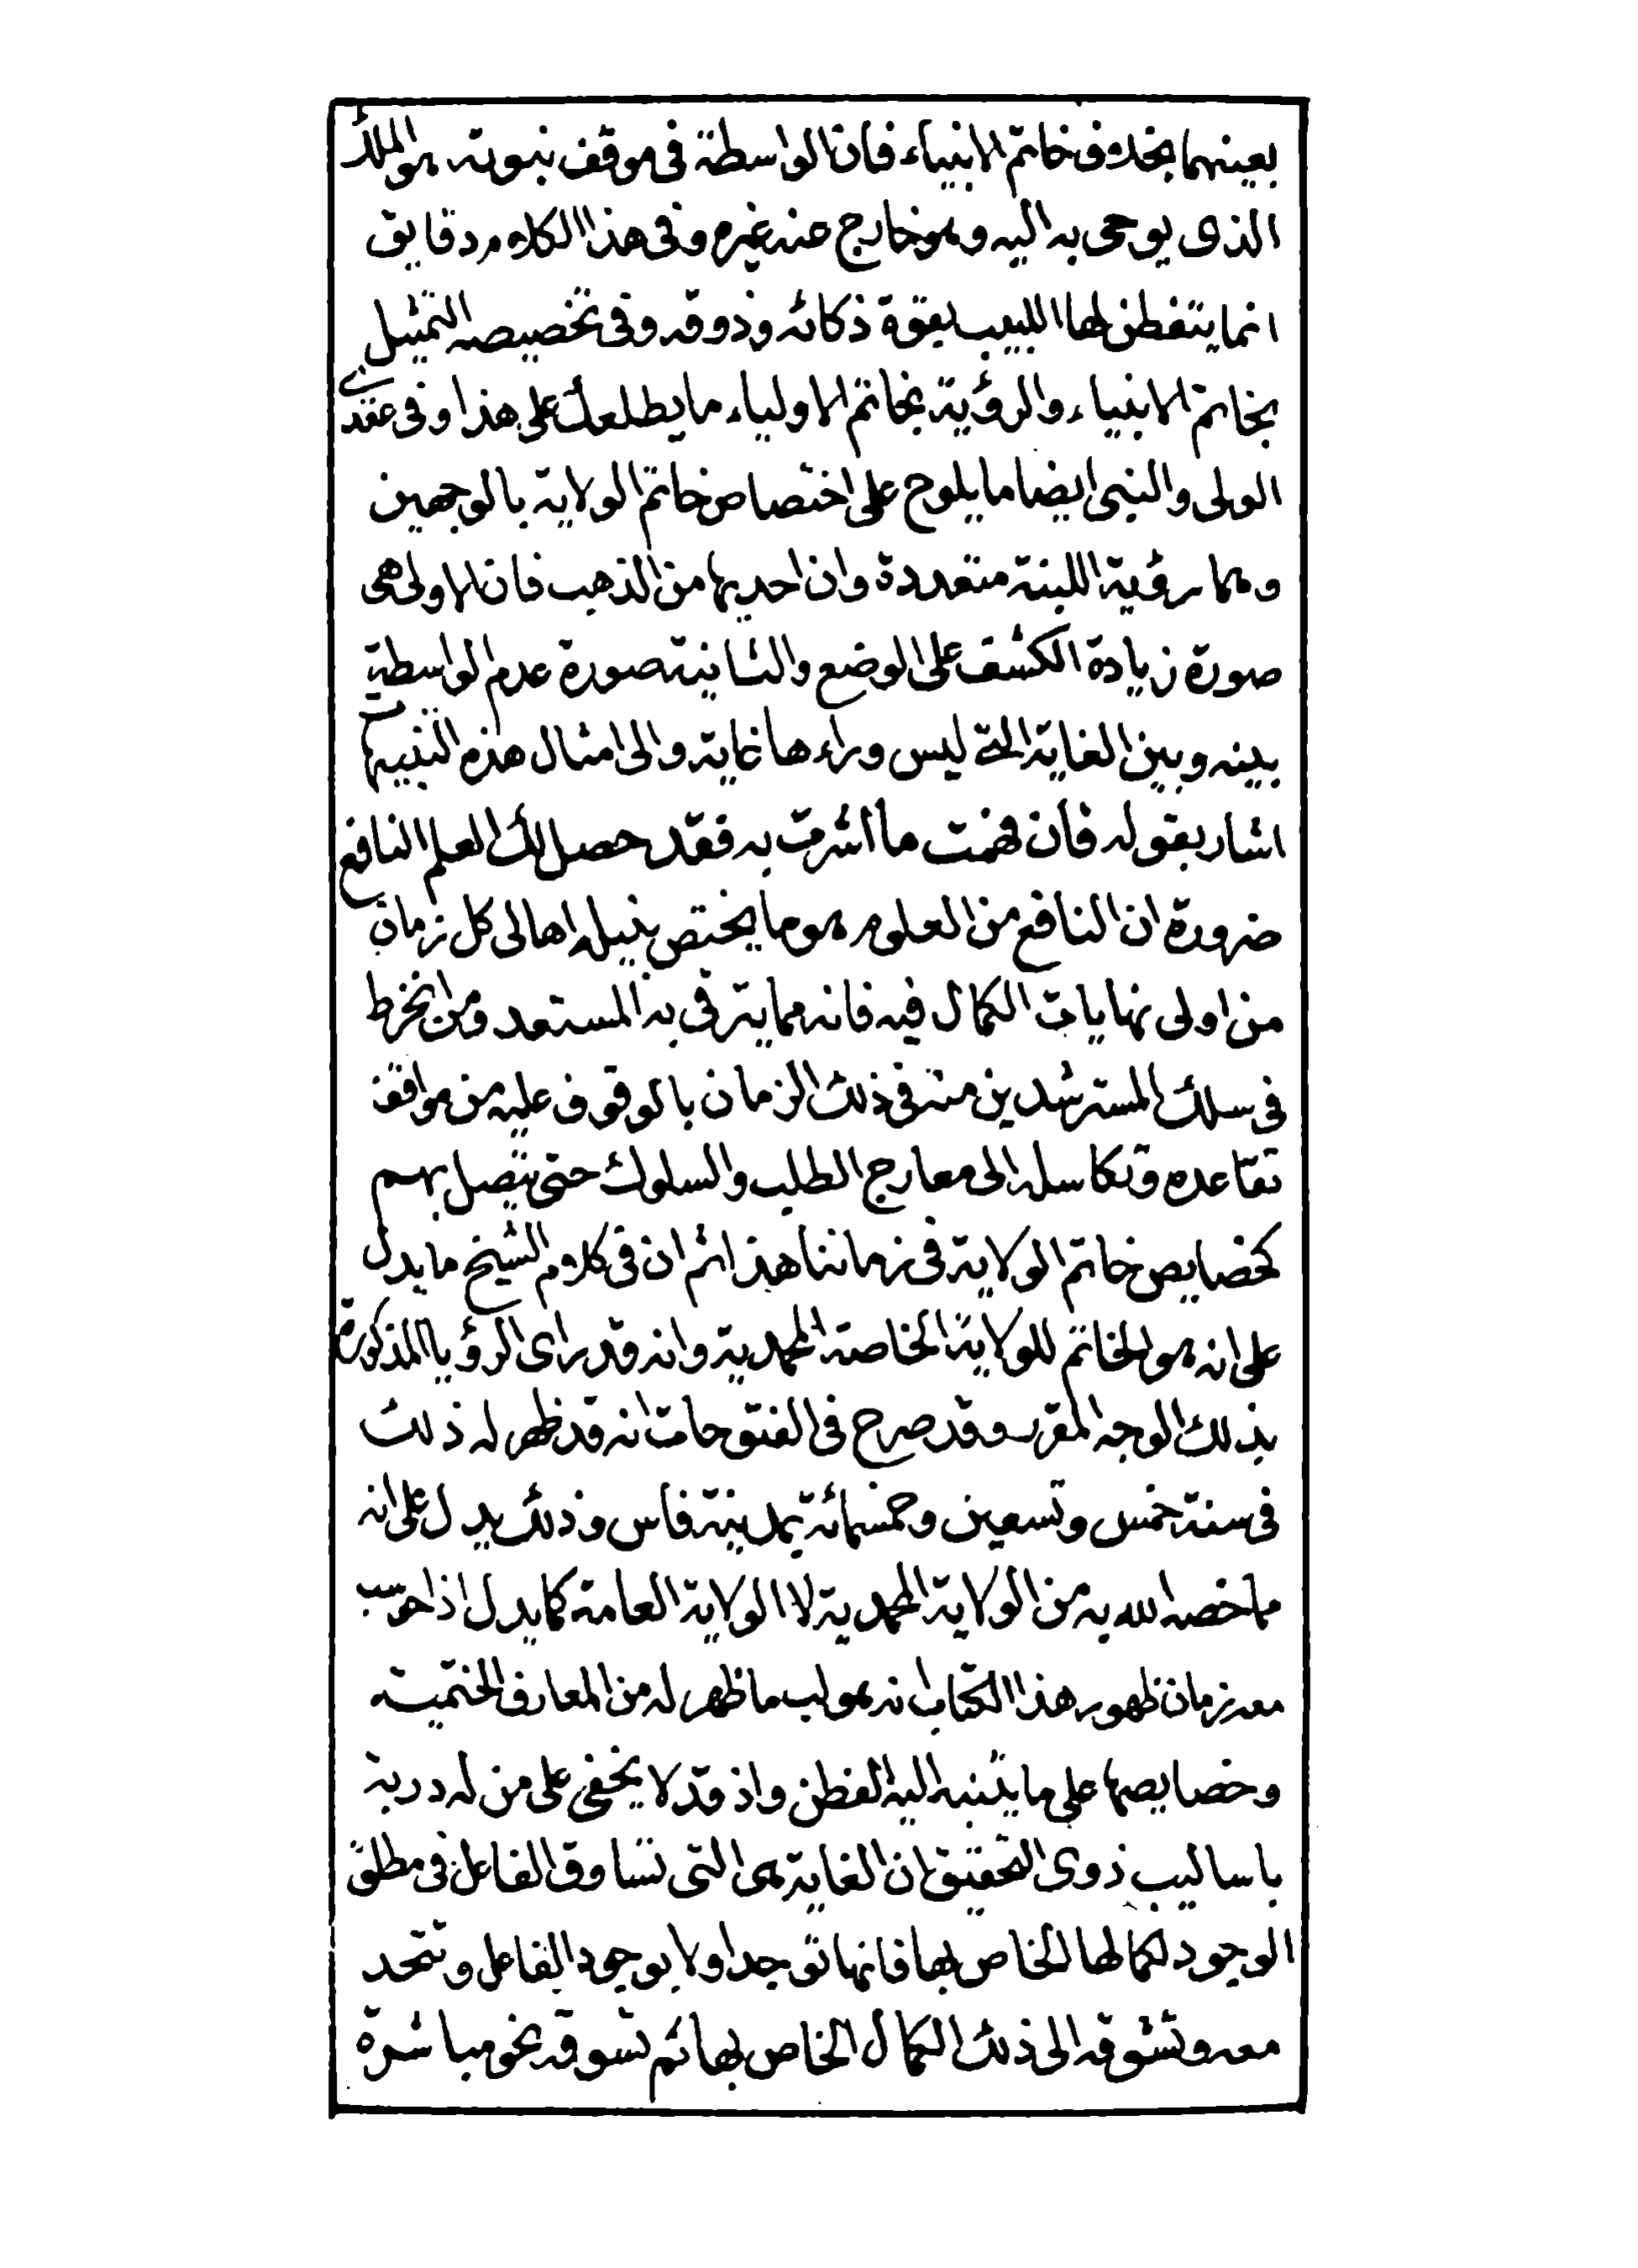 بعينهما بخلاف خاتم الانبياء فان الواسطة فى موقف نبوته هو الملك
الذى يوحى به اليه وهو خارج عنه غيره وفى هذا الكلام دقايق
انما يتفطن لها اللبيب بقوة ذكائه وذوقه وفى تخصيصه التمثيل
بخاتم الانبياء والرؤية بخاتم الاولياء ما يطلعك على هذا وفى عقدى
الولى والنبى ايضا ما يلوح على اختصاص خاتم الولاية بالوجهين
وهما رؤية اللبنة متعددة وان احديها من الذهب فان الاولى هى
صورة زيادة الكشف على الوضع والثانية صورة عدم الواسطة
بينه وبين الغاية التى ليس وراءها غاية والى امثال هذه التنبيهات
اشار بقوله فان فهمت ما اشرت به فقد حصل لك العلم النافع
ضرورة ان النافع من العلوم هو ما يختص بنيله اهالى كل زمان
من اولى نهايات الكمال فيه فانه مما يترقى به المستعد ومن انخرط
فى سلك المسترشدين منه فى ذلك الزمان بالوقوف عليه من مواقف
تقاعده وتكاسله الى معارج الطلب والسلوك حتى يتصل بهم
كخصايص خاتم الولاية فى زماننا هذا ثم ان فى كلام الشيخ ما يدل
على انه هو الخاتم للولاية الخاصة المحمدية وانه قد راى الرؤيا المذكورة
بذلك الوجه المقرر وقد صرح فى الفتوحات انه قد ظهر له ذلك
فى سنة خمس وتسعين وخمسمائة بمدينة فاس وذلك يدل على انه
مما خصه الله به من الولاية المحمدية لا الولاية العامة كما يدل اذا حوسب
معه زمان ظهور هذا الكتاب انه هو لب ما ظهر له من المعارف الختمية
وخصايصها على ما يتنبه اليه الفطن واذ قد لا يخفى على من له دربة
باساليب ذوى التحقيق ان الغاية هى التى تساوق الفاعل فى مطلق
الوجود لكمالها الخاص بها فانها توجد اولا بوجود الفاعل وتتحد
معه وتشوقه الى ذلك الكمال الخاص بها ثم تسوقه نحو مباشرة